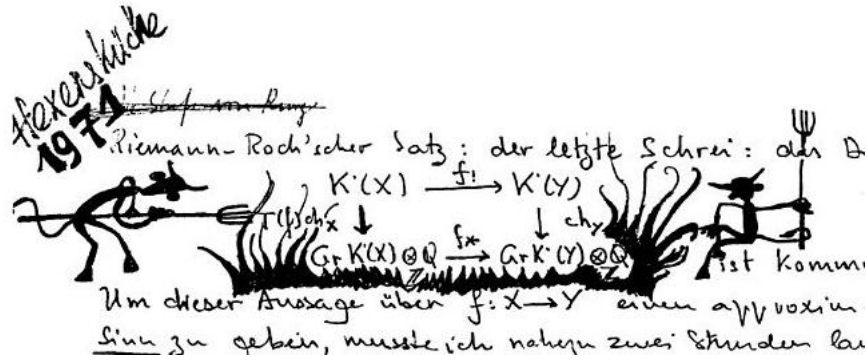 Hexenküche
1971
Riemann-Roch'scher Satz: der letzte Schrei: das
K˙(X) f! → K˙(Y)
↓ T(f)ch_X ↓ ch_Y
Gr K˙(X) ⊗_Z Q f* → Gr K˙(Y) ⊗_Z Q
ist kommu
Um dieser Aussage über f: X → Y einen approxim
Sinn zu geben, musste ich nahezu zwei Stunden la